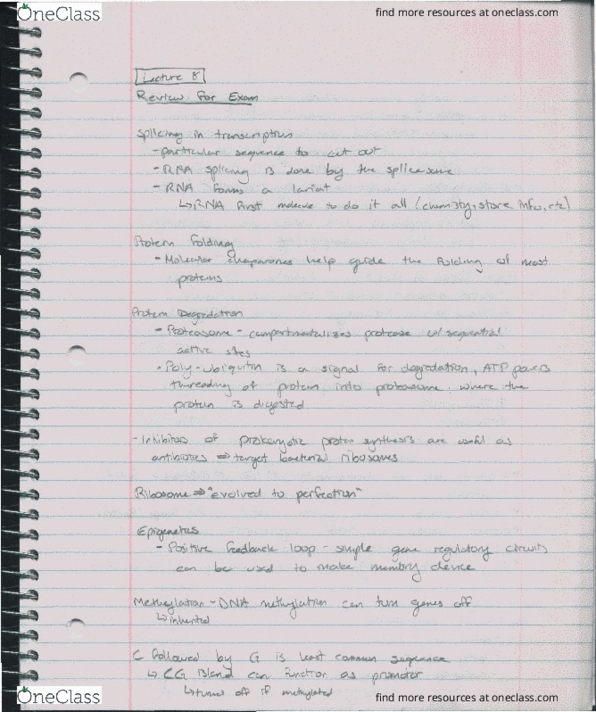 OneClass
find more resources at oneclass.com
Lecture 8
Review For Exam
Splicing in transcription
- particular sequence to cut out
- RNA splicing is done by the spliceosome
- RNA forms a lariat
↳ RNA first molecule to do it all (chemistry, store info, etc)
Protein Folding
- Molecular chaperones help guide the folding of most
proteins
Protein Degradation
- Proteasome - compartmentalizes protease w/ sequential
active sites
- Poly-ubiquitin is a signal for degradation, ATP powers
threading of protein into proteasome where the
protein is digested
- Inhibitors of prokaryotic protein synthesis are useful as
antibiotics ⇒ target bacterial ribosomes
Ribosome ⇒ "evolved to perfection"
Epigenetics
- Positive feedback loop - simple gene regulatory circuits
can be used to make memory device
Methylation - DNA methylation can turn genes off
↳ inherited
C followed by G is least common sequence
↳ CG island can function as promotor
↳ turns off if methylated
OneClass
find more resources at oneclass.com